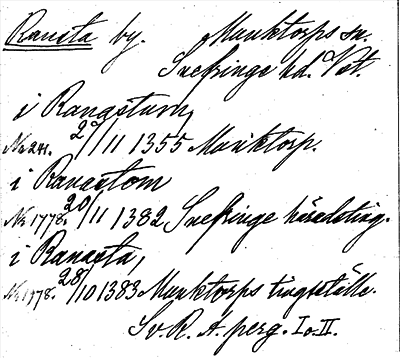 Ransta by. Munktorps sn.
Snefringe hd. Vst.
i Rangstum,
No 241. 27/11 1355 Munktorp.
i Ranastom
No 1778. 20/11 1382 Snefringe häradsting.
i Ranasta,
No 1778. 28/10 1383 Munktorps tingsställe.
Sv. R. A. perg. I o. II.